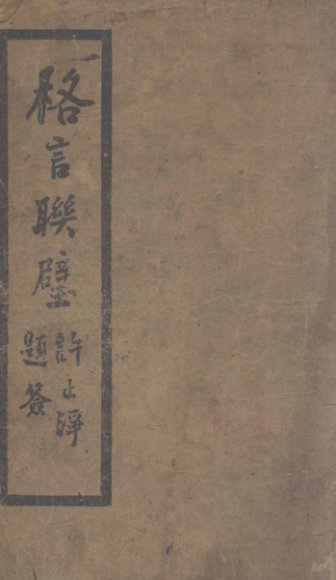 格言聯璧
許止淨
題簽